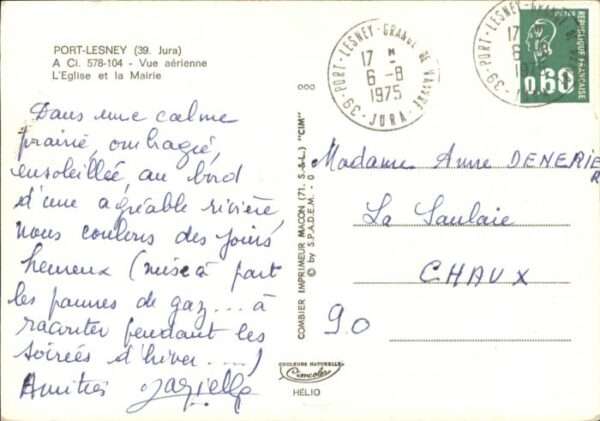 PORT-LESNEY (39. Jura)
A Ci. 578-104 - Vue aérienne
L'Eglise et la Mairie
Dans une calme
prairie, ombragée,
ensoleillée, au bord
d'une agréable rivière,
nous coulons des jours
heureux (mise à part
les pannes de gaz.... à
raconter pendant les
soirées d'hiver....)
Amitiés
000
COMBIER IMPRIMEUR MACON (71. S.-&-L.) "CIM"
© by S.P.A.D.E.M. - 0
COULEURS NATURELLES
Cimcolor
HÉLIO
39-PORT-LESNEY-GRANGE DE VAIVRE
17 H
6-8
1975
JURA
39-PORT-LESNEY-GRANGE
17
6
1975
REPUBLIQUE FRANÇAISE
0,60
Madame Anne DENERIER
La Saulaie
CHAUX
90